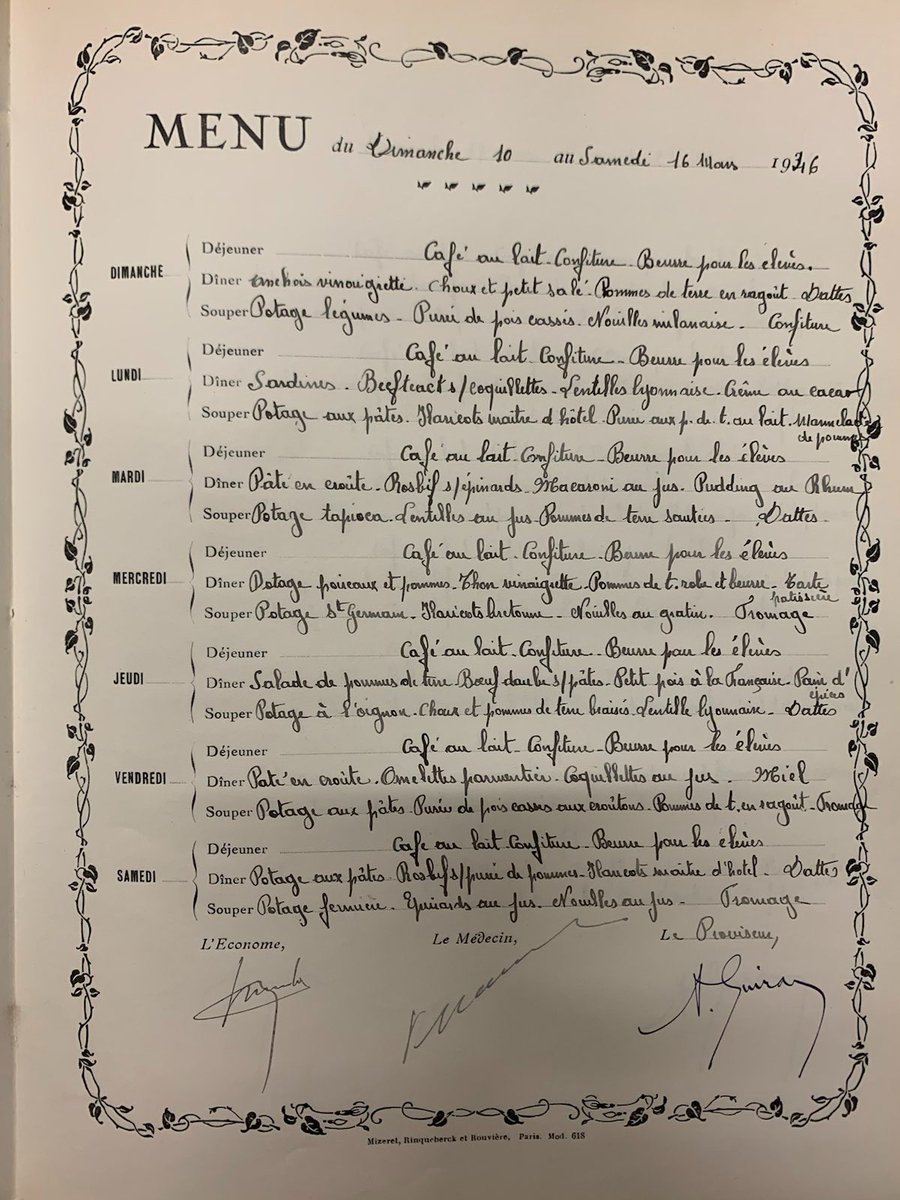 MENU du Dimanche 10 au Samedi 16 Mars 1946
DIMANCHE
Déjeuner Café au lait - Confiture - Beurre pour les élèves.
Dîner anchois vinaigrette - Choux et petit salé - Pommes de terre en ragoût - Dattes
Souper Potage légumes - Purée de pois cassés - Nouilles milanaise - Confiture
LUNDI
Déjeuner Café au lait - Confiture - Beurre pour les élèves
Dîner Sardines - Beefteacks s/coquillettes - Lentilles lyonnaise - Crême au cacao
Souper Potage aux pâtes - Haricots maitre d'hôtel - Purée aux p. de t. au lait -
de pommes
MARDI
Déjeuner Café au lait - Confiture - Beurre pour les élèves
Dîner Pâté en croûte - Rosbif s/épinards - Macaroni au jus - Pudding au Rhum
Souper Potage tapioca - Lentilles au jus - Pommes de terre sautées - Dattes
MERCREDI
Déjeuner Café au lait - Confiture - Beurre pour les élèves
Dîner Potage poireaux et pommes - Thon vinaigrette - Pommes de t. robe et beurre - Tarte
patissière
Souper Potage St Germain - Haricots bretonne - Nouilles au gratin. Fromage
JEUDI
Déjeuner Café au lait - Confiture - Beurre pour les élèves
Dîner Salade de pommes de terre - Boeuf daube s/pâtes - Petit pois à la Française - Pain d'
épices
Souper Potage à l'oignon - Choux et pommes de terre braisés - Lentille lyonnaise - Dattes
VENDREDI
Déjeuner Café au lait - Confiture - Beurre pour les élèves
Dîner Paté en croûte - Omelettes parmentier - Coquillettes au jus - Miel
Souper Potage aux pâtes - Purée de pois cassés aux croûtons - Pommes de t. en ragoût - Fromage
SAMEDI
Déjeuner Café au lait - Confiture - Beurre pour les élèves
Dîner Potage aux pâtes - Rosbif s/purée de pommes - Haricots maitre d'hotel - Dattes
Souper Potage fermière - Epinards au jus - Nouilles au jus - Fromage
L'Econome, Le Médecin, Le Proviseur,
A. Guiran
Mizeret, Rinqueberck et Rouvière, Paris. Mod. 618